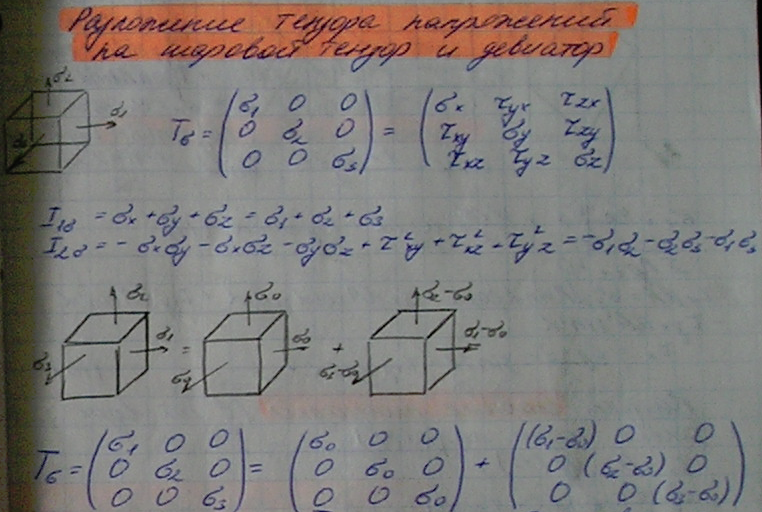 Разложение тензора напряжений
на шаровой тензор и девиатор
σ₂
σ₁
σ₃
Tσ = (σ₁ 0 0) = (σx τyx τzx)
(0 σ₂ 0) (τxy σy τzy)
(0 0 σ₃) (τxz τyz σz)
I₁σ = σx + σy + σz = σ₁ + σ₂ + σ₃
I₂σ = - σxσy - σxσz - σyσz + τ²xy + τ²xz + τ²yz = -σ₁σ₂ - σ₂σ₃ - σ₁σ₃
σ₂ σ₀ σ₂-σ₀
σ₁ = σ₀ + σ₁-σ₀
σ₃ σ₀ σ₃-σ₀
Tσ = (σ₁ 0 0) = (σ₀ 0 0) + ((σ₁-σ₀) 0 0)
(0 σ₂ 0) (0 σ₀ 0) (0 (σ₂-σ₀) 0)
(0 0 σ₃) (0 0 σ₀) (0 0 (σ₃-σ₀))